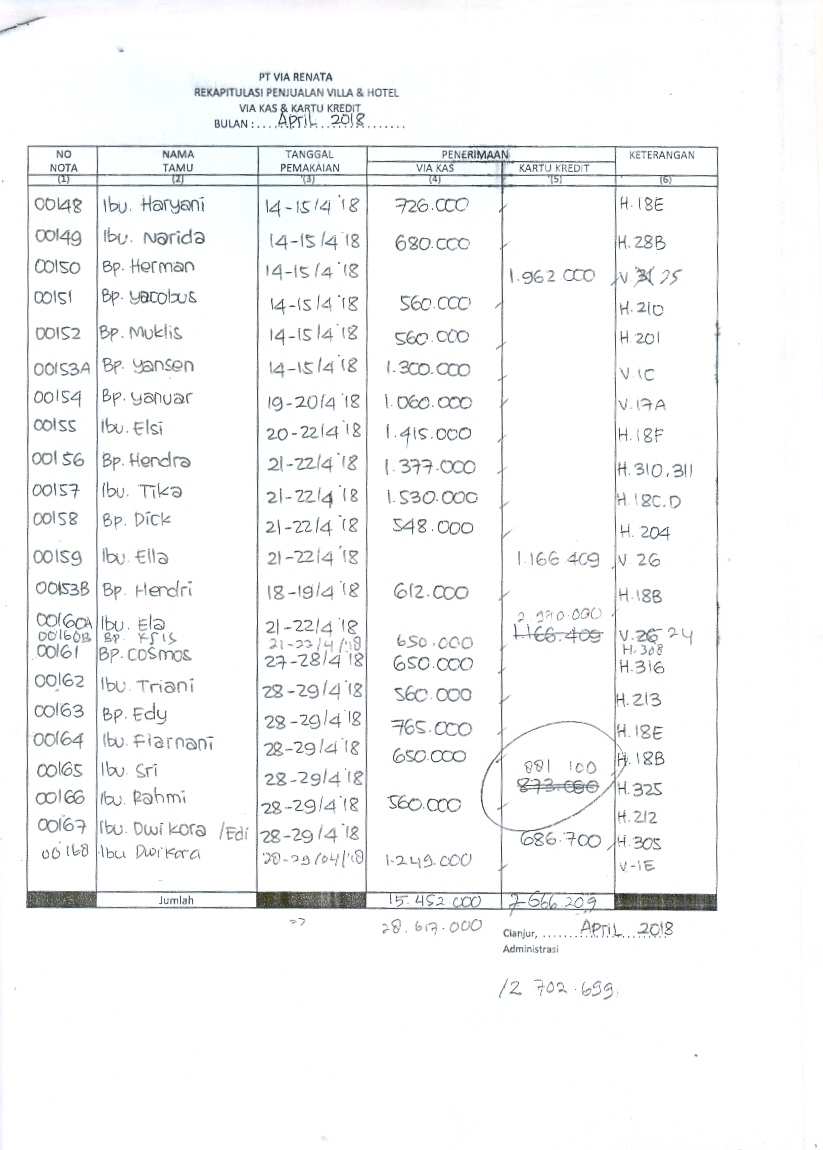 PT VIA RENATA
REKAPITULASI PENJUALAN VILLA & HOTEL
VIA KAS & KARTU KREDIT
BULAN : April 2018
NO NOTA NAMA TAMU TANGGAL PEMAKAIAN PENERIMAAN KETERANGAN
VIA KAS KARTU KREDIT
(1) (2) (3) (4) (5) (6)
00148 Ibu. Haryani 14-15/4 '18 726.000 H.18E
00149 Ibu. Narida 14-15/4 '18 680.000 H.28B
00150 Bp. Herman 14-15/4 '18 1.962 000 V 25
00151 Bp. Yacobus 14-15/4 '18 560.000 H.210
00152 Bp. Muklis 14-15/4 '18 560.000 H.201
00153A Bp. Yansen 14-15/4 '18 1.300.000 V.1C
00154 Bp. Yanuar 19-20/4 '18 1.060.000 V.17A
00155 Ibu. Elsi 20-22/4 '18 1.415.000 H.18F
00156 Bp. Hendra 21-22/4 '18 1.377.000 H.310.311
00157 Ibu. Tika 21-22/4 '18 1.530.000 H 18C.D
00158 Bp. Dick 21-22/4 '18 548.000 H. 204
00159 Ibu. Ella 21-22/4 '18 1.166 409 V. 26
00153B Bp. Hendri 18-19/4 '18 612.000 H.18B
2 970.000
00160A Ibu. Ela 21-22/4 '18 1.166.409 V.26 24
00160B Bp. 21-22/4/'18 650.000 H.308
00161 Bp. Cosmos 27-28/4 '18 650.000 H.316
00162 Ibu. Triani 28-29/4 '18 560.000 H.213
00163 Bp. Edy 28-29/4 '18 765.000 H.18E
00164 Ibu. Fiarnani 28-29/4 '18 650.000 H.18B
881 100
00165 Ibu. Sri 28-29/4 '18 873.000 H.325
00166 Ibu. Rahmi 28-29/4 '18 560.000 H.212
00167 Ibu. Dwi Kora /Edi 28-29/4 '18 686.700 H.305
00168 Ibu Dwi Kora 28-29/04/'18 1.249.000 V-1E
Jumlah 15.452 000 7 666 209
=> 28.617.000
Cianjur, APRIL 2018
Administrasi
12 702.699